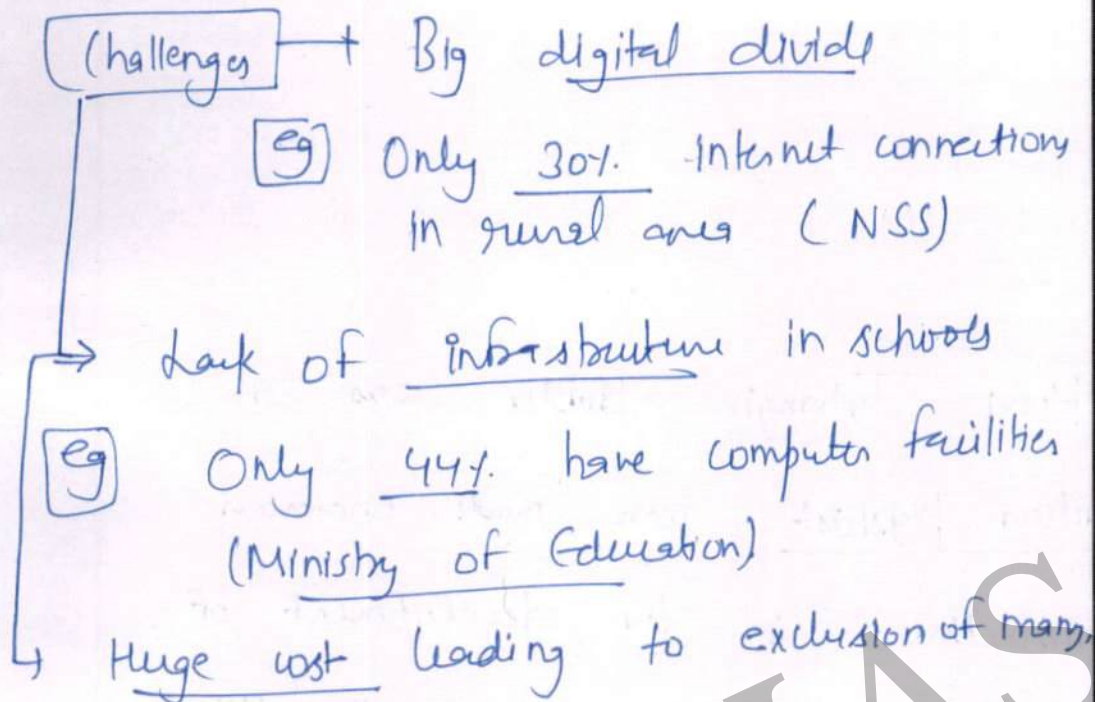 Challenges → Big digital divide
eg Only 30%. Internet connections
in rural area (NSS)
→ Lack of infrastructure in schools
eg Only 44%. have computer facilities
(Ministry of Education)
↳ Huge cost leading to exclusion of many,
IAS